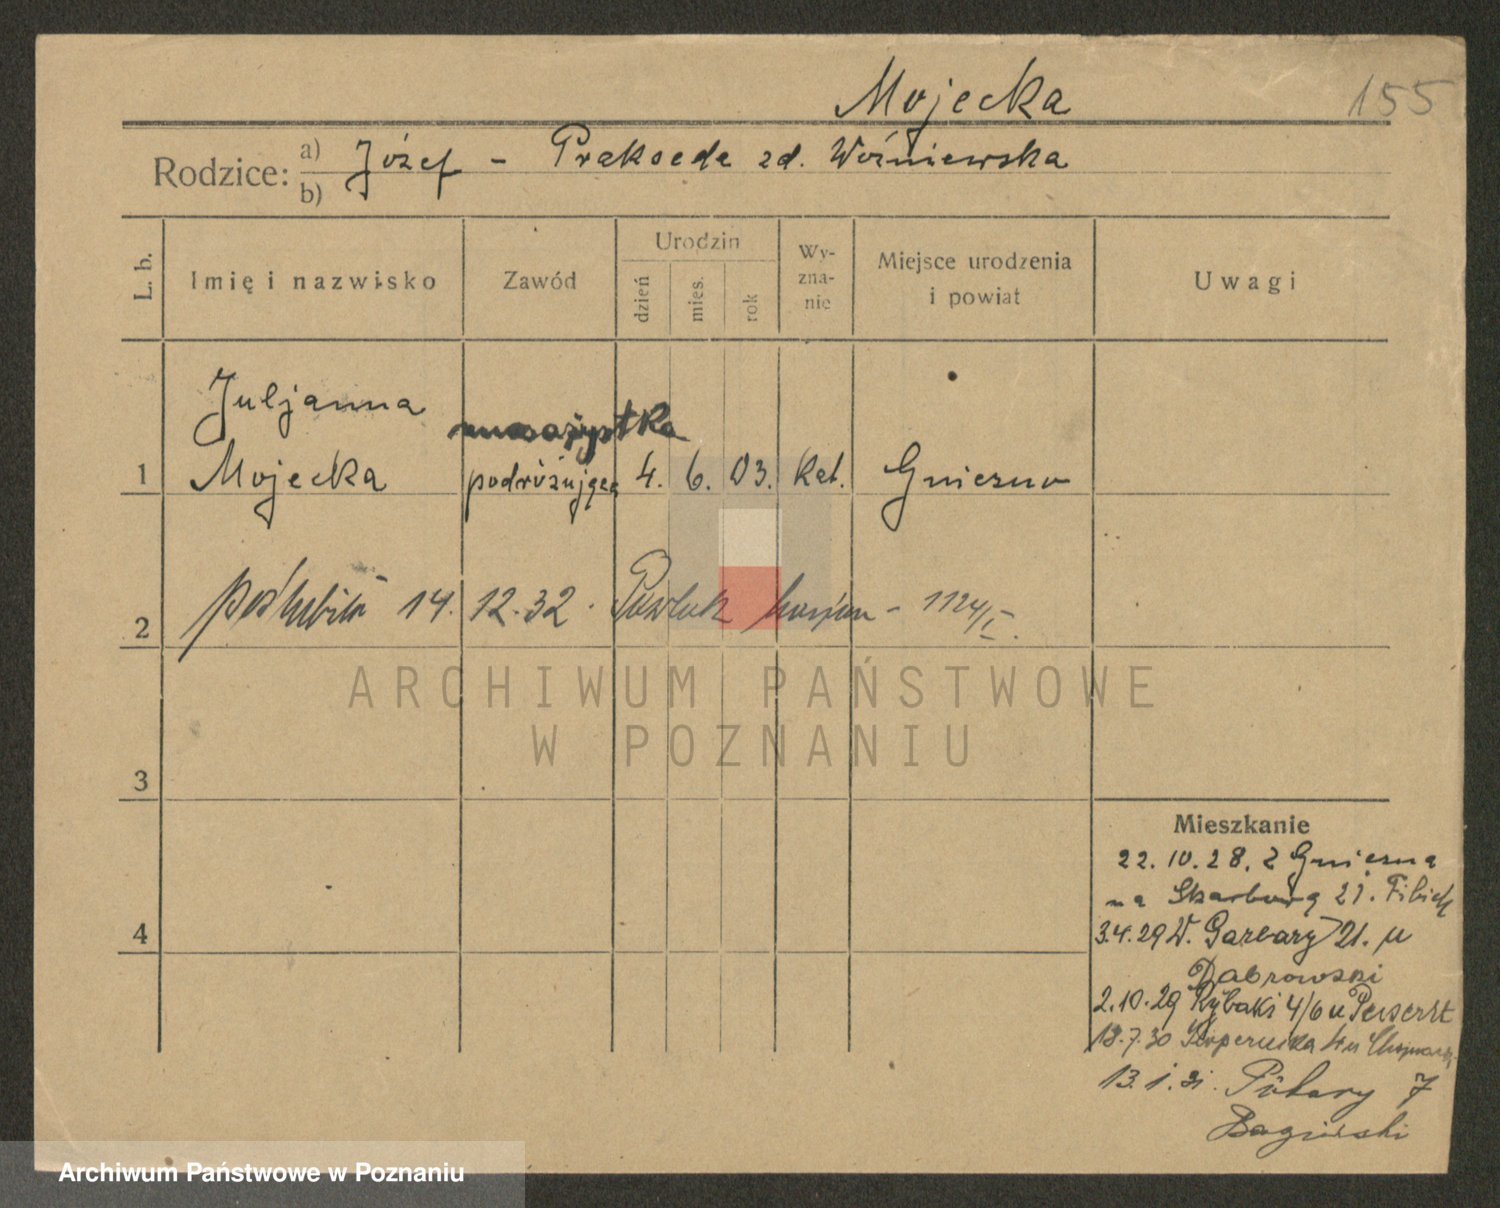 Mojecka
155
Rodzice: a) Józef - Prakseda zd. Woźniewska
b)
L. b.
Imię i nazwisko
Zawód
Urodzin
dzień
mies.
rok
Wy-
zna-
nie
Miejsce urodzenia
i powiat
Uwagi
Juljanna
masażystka
1 Mojecka podróżująca 4. 6. 03. Kat. Gniezno
2 poślubiła 14. 12. 32. Pawlak - 1124/I.
ARCHIWUM PAŃSTWOWE
W POZNANIU
3
4
Mieszkanie
22. 10. 28. z Gniezna
na Skarbową 21.
3.4.29 W. Garbary 21. u
Dabrowski
2.10.29 Rybaki 4/6 u
18.7.30 Kopernika 4 u
13. 1. 31.
Archiwum Państwowe w Poznaniu